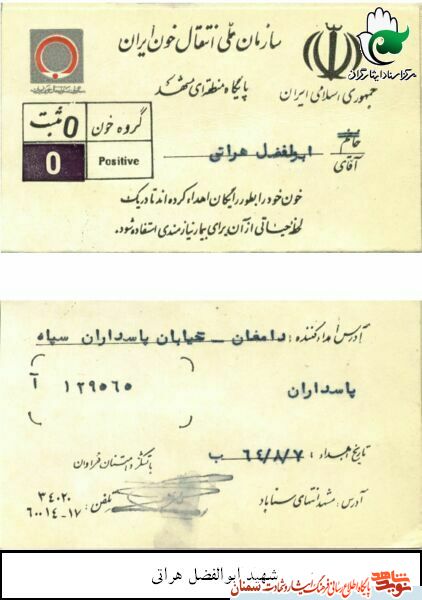 سازمان ملی انتقال خون ایران
پایگاه منطقه‌ای مشهد
جمهوری اسلامی ایران
مرکز اسناد ایثارگران
گروه خون
O مثبت
Positive
O
خانم
آقای
ابوالفضل هراتی
خون خود را بطور رایگان اهداء کرده‌اند تا در یک
لحظه حیاتی از آن برای بیمار نیازمندی استفاده شود.
آدرس اهداء کننده : دامغان – خیابان پاسداران سپاه
پاسداران
۱۲۹۵۶۵ آ
تاریخ اهداء : ۶۴/۸/۷ ب
با تشکر و امتنان فراوان
آدرس : مشهد انتهای سناباد
تلفن : ۳۴۰۲۰
۶۰۰۱۴-۱۷
شهید ابوالفضل هراتی
نوید شاهد
پایگاه اطلاع رسانی فرهنگ ایثار و شهادت سمنان